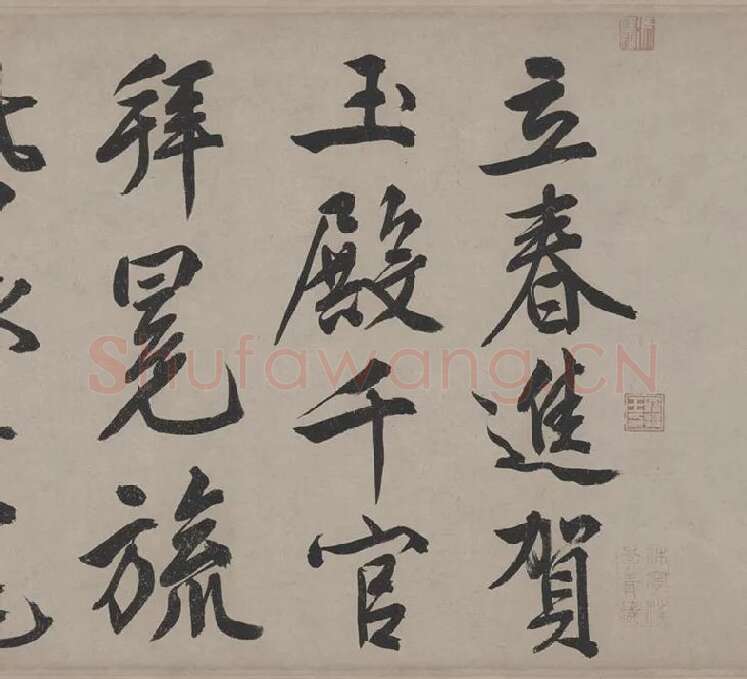 立春進賀
玉殿千官
拜冕旒
Shufawang.CN